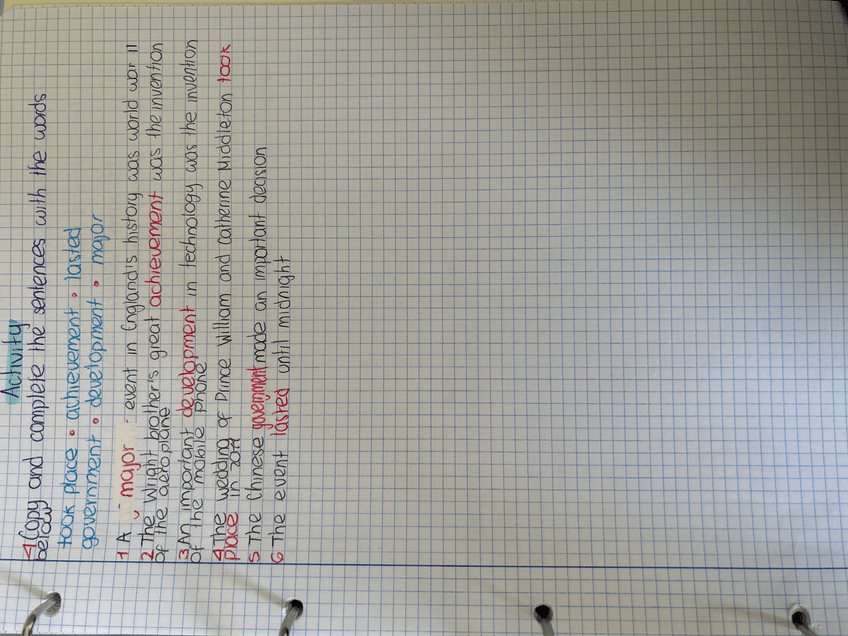 Activity
1 Copy and complete the sentences with the words
below
took place • achievement • lasted
government • development • major
1 A major event in England's history was world war II
2 The Wright brother's great achievement was the invention
of the aeroplane
3 An important development in technology was the invention
of the mobile phone
4 The wedding of Prince William and Catherine Middleton took
place in 2011
5 The Chinese government made an important decision
6 The event lasted until midnight